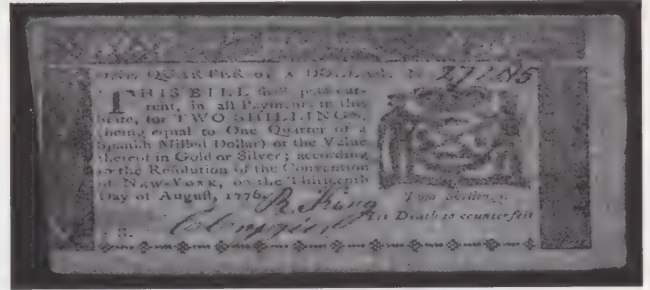 ONE QUARTER of a DOLLAR. N. 27185
THIS BILL shall pass cur-
rent, in all Payments in this
State, for TWO SHILLINGS,
(being equal to One Quarter of a
Spanish Milled Dollar) or the Value
thereof in Gold or Silver; according
to the Resolution of the Convention
of NEW-YORK, on the Thirteenth
Day of August, 1776.
Two Shillings.
'Tis Death to counterfeit